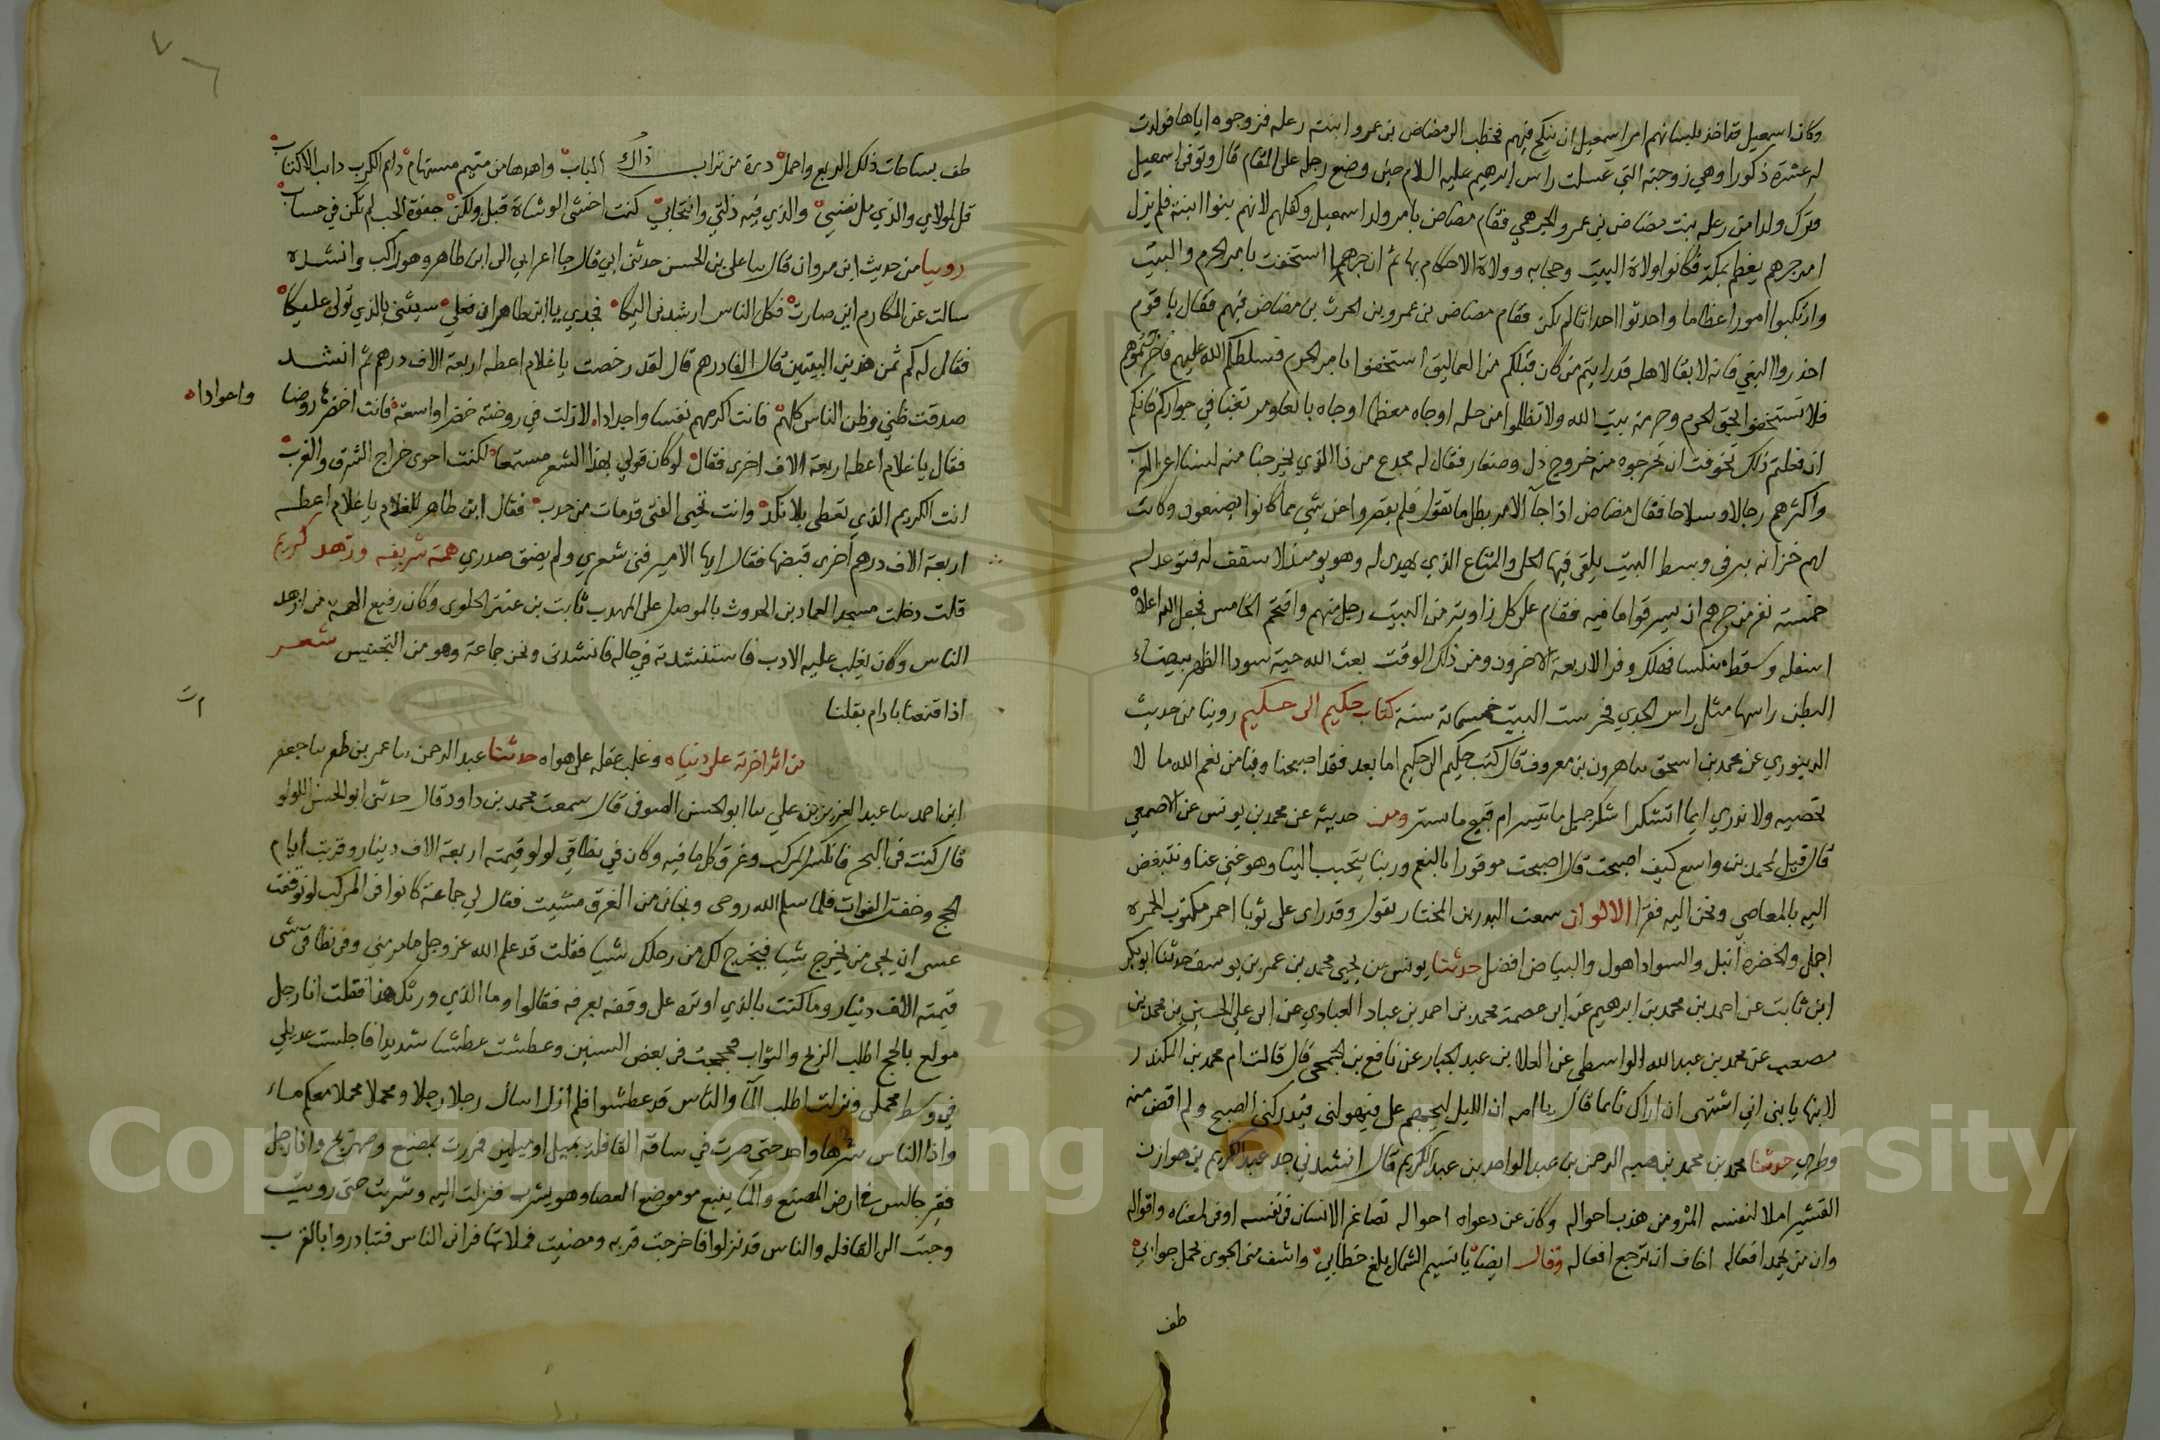 وكان اسمعيل قد اخذ بلسانهم امر اسمعيل ان ينكح فيهم فخطب الى مضاض بن عمرو ابنته رعله فزوجوه اياها فولدت
له عشرة ذكورا وهي زوجته التي غسلت راس ابرهيم عليه السلام حين وضع رجله على المقام قال وتوفى اسمعيل
وترك ولدا من رعله بنت مضاض بن عمرو الجرهمي فقام مضاض بامر ولد اسمعيل وكفلهم لانهم بنوا ابنته فلم يزل
امر جرهم يعظم بمكة فكانوا ولاة البيت وحجابه وولاة الاحكام بها ثم ان جرهما استخفت بامر الحرم والبيت
وارتكبوا امورا عظاما واحدثوا احداثا لم تكن فقام مضاض بن عمرو بن الحرث بن مضاض فيهم فقال يا قوم
احذروا البغي فانه لا بقا لاهله قد رايتم من كان قبلكم من العماليق استخفوا بامر الحرم فسلطكم الله عليهم فاخرجتموهم
فلا تستخفوا بحق الحرم وحرمة بيت الله ولا تظلموا من دخله او جاه معظما او جاه بايعا ومرتغبا في جواركم فانكم
ان فعلتم ذلك تخوفت ان تخرجوه منه خروج ذل وصغار فقال له مجدع من ذا الذي يخرجنا منه لسنا اعز العرب
واكثرهم رجالا وسلاحا فقال مضاض اذا جآ الامر بطل ما تقول فلم يقصروا عن شي مما كانوا يصنعون وكانت
لهم خزانه بير في وسط البيت يلقى فيها الحلى والمتاع الذي يهدى له وهو يومئذ لا سقف له فتوعد له
خمسة نفر من جرهم ان يسرقوا ما فيه فقام على كل زاوية من البيت رجل منهم واقتحم الخامس فجعل الله اعلاه
اسفله وسقط منكسا فهلك وفر الاربعة الاخرون ومن ذلك الوقت بعث الله حية سودا الظهر بيضاء
البطن راسها مثل راس الجدي فحرست البيت خمسمائة سنة كتاب حكيم الى حكيم روينا من حديث
الدينوري عن محمد بن اسحق ثنا هرون بن معروف قال كتب حكيم الى حكيم اما بعد فقد اصبحنا وبنا من نعم الله ما لا
نحصيه ولا ندري ايما نشكر اشكر جميل ما تيسر ام قبيح ما ستر ومن حديثه عن محمد بن يونس عن الاصمعي
قال قيل لمحمد بن واسع كيف اصبحت قال اصبحت موقورا بالنعم وربنا يتحبب الينا وهو غني عنا ونتبغض
اليه بالمعاصي ونحن اليه فقرا الالوان سمعت البدر بن المختار يقول وقد راى على ثوبا احمر مكتوب الحمره
اجمل والخضرة انبل والسواد اهول والبياض افضل حدثنا يونس بن يحيى محمد بن عمر بن يوسف حدثنا ابو بكر
ابن ثابت عن احمد بن محمد بن ابرهيم عن ابن عصمة محمد بن احمد بن عباد العبادي عن ابي علي الحسين بن محمد بن
مصعب عن محمد بن عبد الله الواسطي عن العلا بن عبد الجبار عن نافع بن الجمحي قال قالت ام محمد بن المنكدر
لابنها يا بني اني اشتهي ان اراك نايما قال يا امه ان الليل ليهجم علي فيهولني فيدركني الصبح ولم اقض منه
وطري حدثنا محمد بن محمد بن هبيه الرحمن بن عبد الواحد بن عبد الكريم قال انشدني جد عبد الكريم بن هوازن
القشيري املا لنفسه المرومن هذب احواله وكان عن دعواه احوا له تصاغر الانسان في نفسه اوفى لمعناه واقواله
وان من يحمد افعاله اخاف ان ترجع افعاله وقال ايضا يا نسيم الشمال بلغ خطابي واشف مني الجوى بحمل جوابي
طف
طف بساحات ذلك الربع واحمل ذرة من تراب ذاك الباب واهدها من متيم مستهام دايم الكرب دايب الاكتئاب
قل لمولاي والذي مل نفسي والذي فيه ذلتي وانتحابي كنت اخشى الوشاة قبل ولكن جفوة الحب لم تكن في حسابي
روينا من حديث ابن مروان قال ثنا علي بن الحسن حدثني ابي قال جا اعرابي الى ابن طاهر وهو راكب وانشده
سالت عن المكارم اين صارت فكل الناس ارشدني اليكا فجد لي يا ابن طاهر ان فعلي سيثني بالذي تولى عليكا
فقال له كم ثمن هذين البيتين قال الفا درهم قال لقد رخصت يا غلام اعطه اربعة الاف درهم ثم انشد
صدقت ظني وظن الناس كلهم فانت اكرمهم نفسا واجدادا لا زلت في روضة خضرا واسعة فانت اخضرها روضا
واعوادا
فقال يا غلام اعطه اربعة الاف اخرى فقال لو كان قولي بهذا الشعر مستمعا لكنت احوى خراج الشرق والغرب
انت الكريم الذي تعطي بلا نكد وانت تحيى الفتى قد مات من حدب فقال ابن طاهر للغلام يا غلام اعطه
اربعة الاف درهم اخرى قبضها فقال ايها الامير فنى شعري ولم يضق صدري همة شريفه وزهد كريم
قلت دخلت مسجد العماد بن الحدوث بالموصل على المهذب ثابت بن عنتر الحلوى وكان رفيع الهمة من ازهد
الناس وكان يغلب عليه الادب فاستنشدته في حاله فانشدني ونحن جماعة وهو من التجنيس شعر
اذا قنعنا بادام بقلنا
من اثر اخرته على دنياه وغلب عقله على هواه حدثنا عبد الرحمن ثنا عمر بن ظفر ثنا جعفر
ابن احمد ثنا عبد العزيز بن علي ثنا ابو الحسن الصوفي قال سمعت محمد بن داود قال حدثني ابو الحسن اللولو
قال كنت في البحر فانكسر المركب وغرق كل ما فيه وكان في نطاقي لولو قيمته اربعة الاف دينار وقربت ايام
الحج وخفت الفوات فلما سلم الله روحي ونجاني من الغرق مشيت فقال لي جماعة كانوا في المركب لو توقفت
عسى ان يجي من يخرج شيا فيخرج لك من رحلك شيا فقلت قد علم الله عز وجل ما مر مني وفي نطاقي شي
قيمته الاف دينار وما كنت بالذي اوثره على وقفه بعرفه فقالوا وما الذي ورثك هذا فقلت انا رجل
مولع بالحج اطلب الربح والثواب فحججت في بعض السنين وعطشت عطشا شديدا فاجلست عديلي
في وسط محملي ونزلت اطلب المآ والناس قد عطشوا فلم ازل اسأل رجلا رجلا ومحملا محملا معكم ماء
واذا الناس شرعا واحد حتى صرت في ساقة القافلة بميل او ميلين فمررت بمصنع وصهريج واذا رجل
فقير جالس في ارض المصنع والمآ ينبع مو موضع العصا وهو يشرب فنزلت اليه وشربت حتى رويت
وجيت الى القافله والناس قد نزلوا فاخرجت قربه ومضيت فملاتها فراني الناس فتبادروا بالقرب